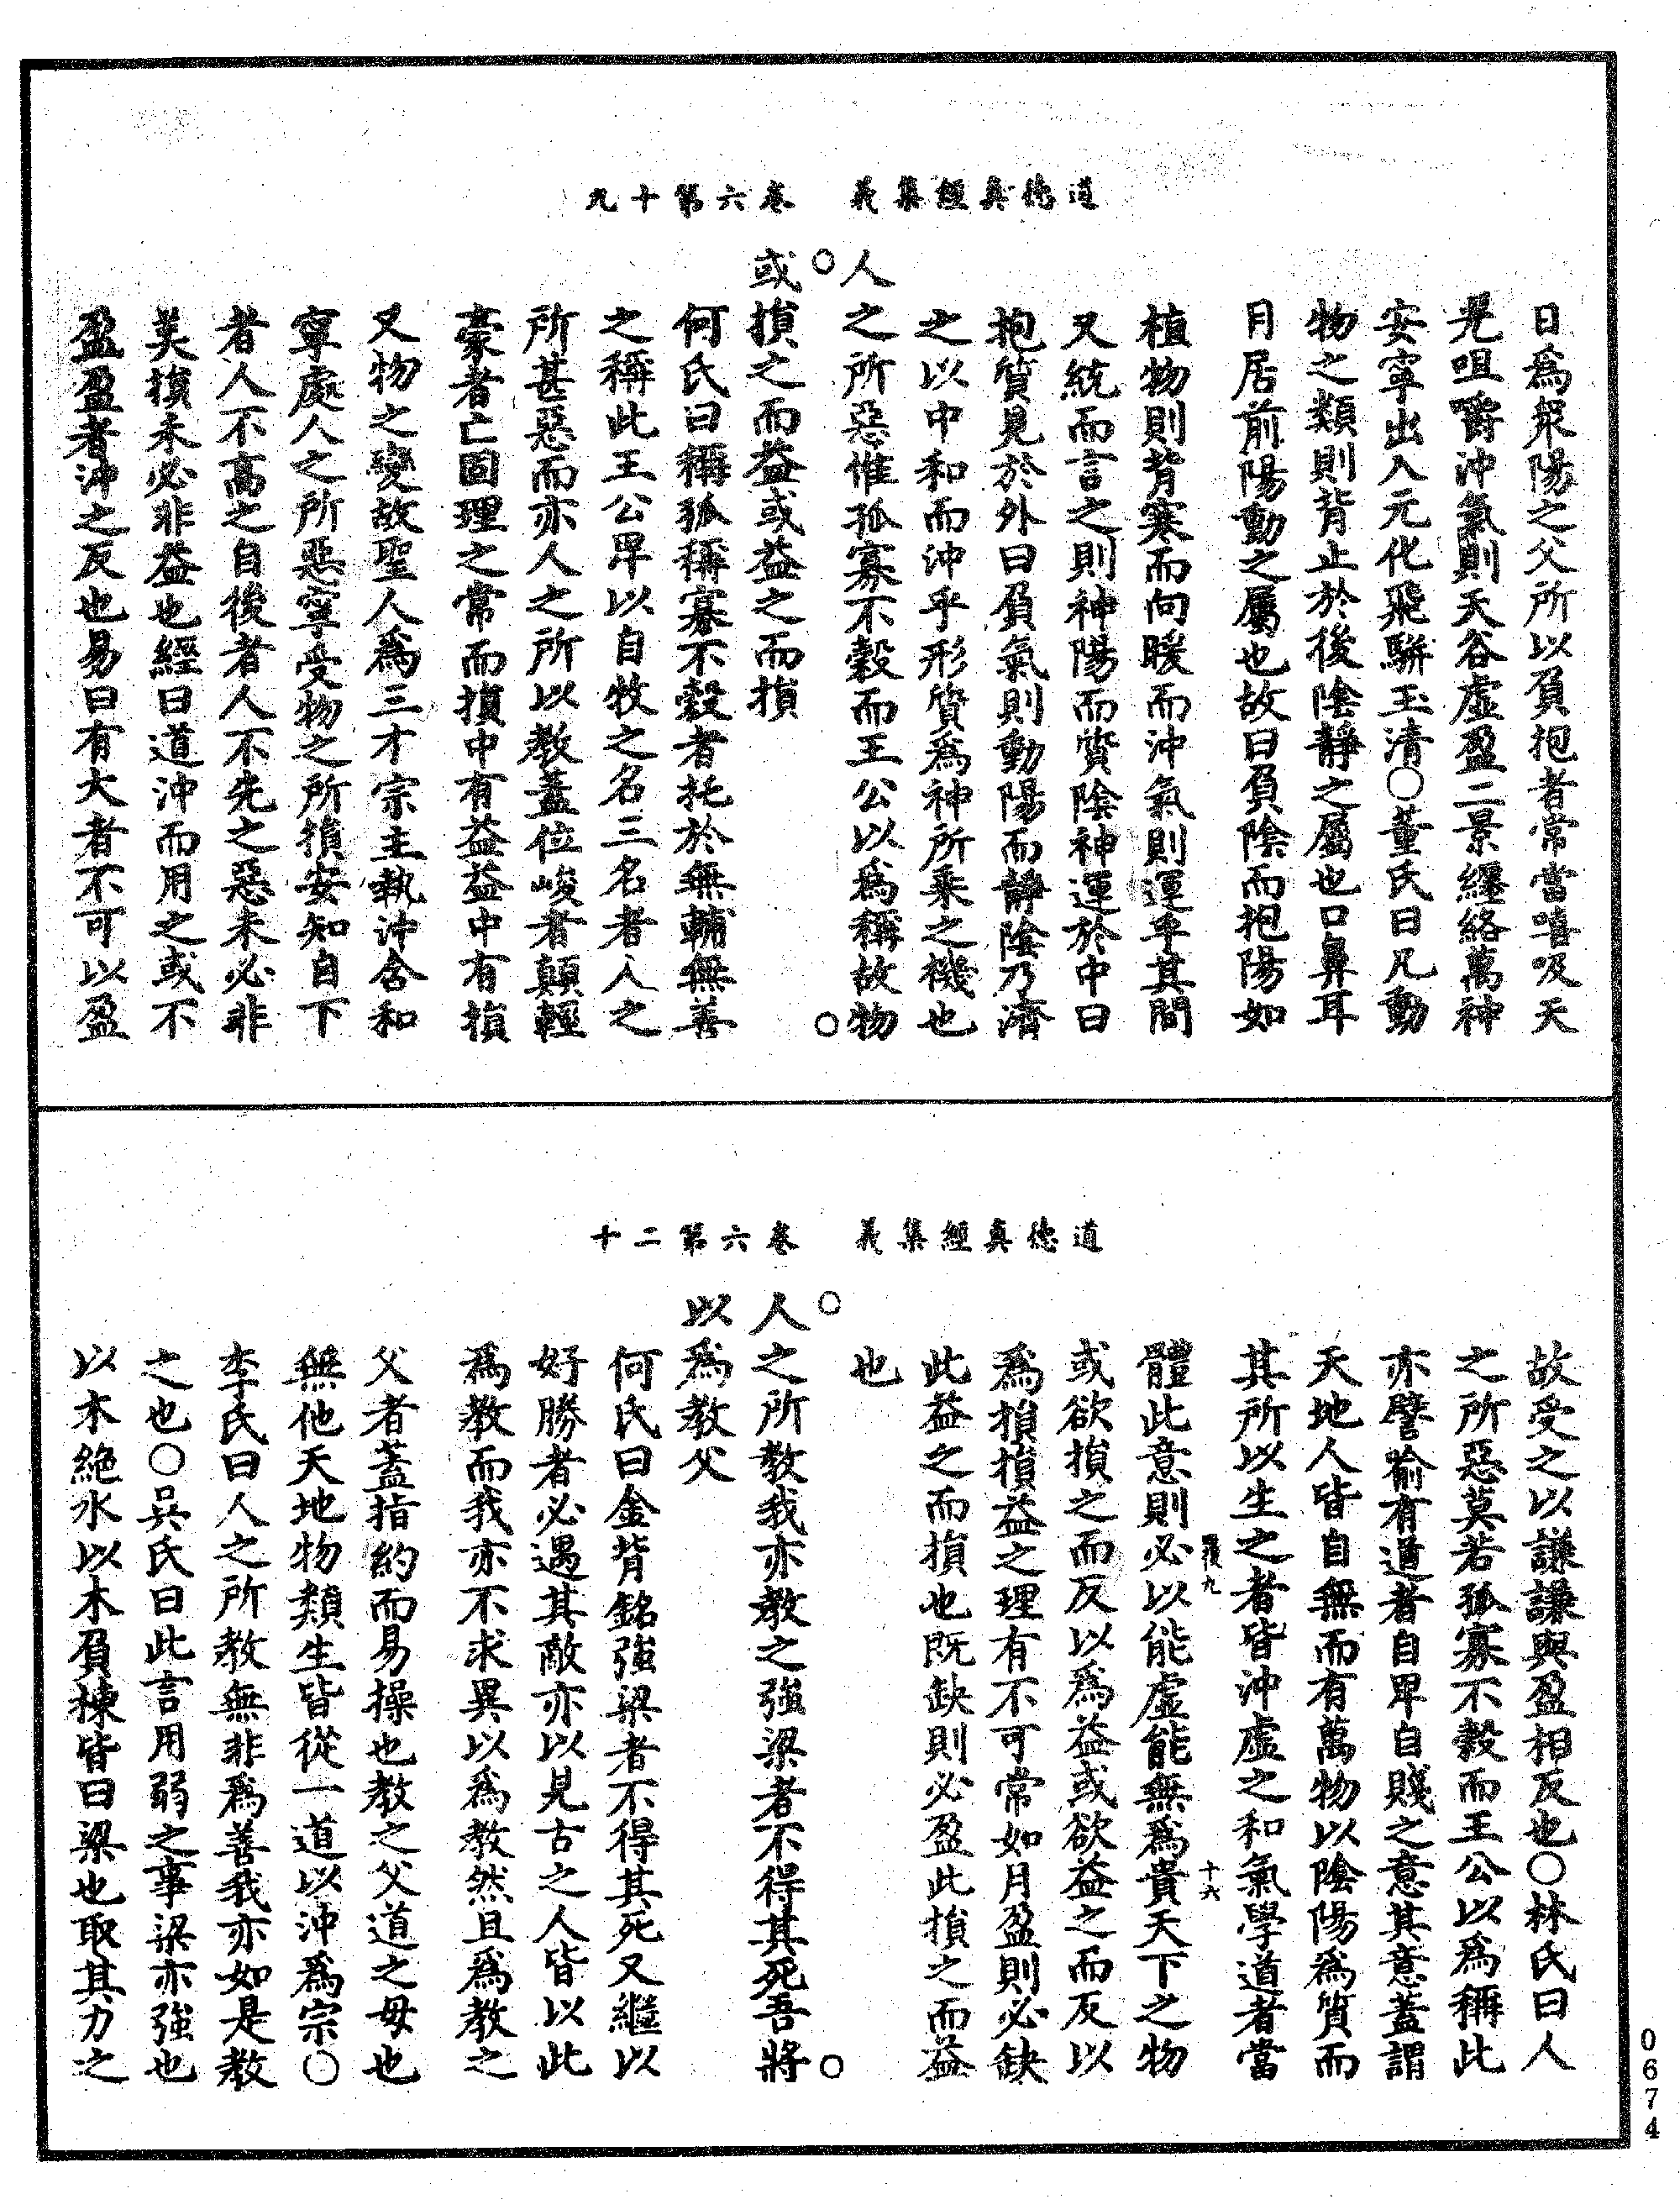 道德真經集義　卷六第十九
日爲衆陽之父所以負抱者常當嘻吸天
晃咀嚼沖氣則天谷虛盈二景纏絡萬神
安寧出入元化飛駢玉清○董氏曰凡動
物之類則背止於後陰靜之屬也口鼻耳
目居前陽動之屬也故曰負陰而抱陽如
植物則背寒而向暖而沖氣則運乎其間
又統而言之則神陽而質陰神運於中曰
抱質見於外曰負氣則動陽而靜陰乃濟
之以中和而沖乎形質爲神所乘之機也
人之所惡惟孤寡不穀而王公以爲稱故物
○　○
或損之而益或益之而損
何氏曰稱孤稱寡不穀者托於無輔無善
之稱此王公卑以自牧之名三名者人之
所甚惡而亦人之所以教蓋位峻者顛輕
豪者亡固理之常而損中有益益中有損
又物之變故聖人爲三才宗主執沖含和
寧處人之所惡寧受物之所損安知自下
者人不高之自後者人不先之惡未必非
美損未必非益也經曰道沖而用之或不
盈盈者沖之反也易曰有大者不可以盈
道德真經集義　卷六第二十
故受之以謙謙與盈相反也○林氏曰人
之所惡莫若孤寡不穀而王公以爲稱此
亦譬喻有道者自卑自賤之意其意蓋謂
天地人皆自無而有萬物以陰陽爲質而
其所以生之者皆沖虛之和氣學道者當
十六
體此意則必以能虛能無爲貴天下之物
或欲損之而反以爲益或欲益之而反以
爲損損益之理有不可常如月盈則必缺
此益之而損也既缺則必盈此損之而益
也
○　○
人之所教我亦教之強梁者不得其死吾將
以爲教父
何氏曰金背銘強梁者不得其死又繼以
好勝者必遇其敵亦以見古之人皆以此
爲教而我亦不求異以爲教然且爲教之
父者蓋指約而易操也教之父道之母也
無他天地物類生皆從一道以沖爲宗○
李氏曰人之所教無非爲善我亦如是教
之也○吳氏曰此言用弱之事梁亦強也
以木絕水以木負棟皆曰梁也取其力之
0674